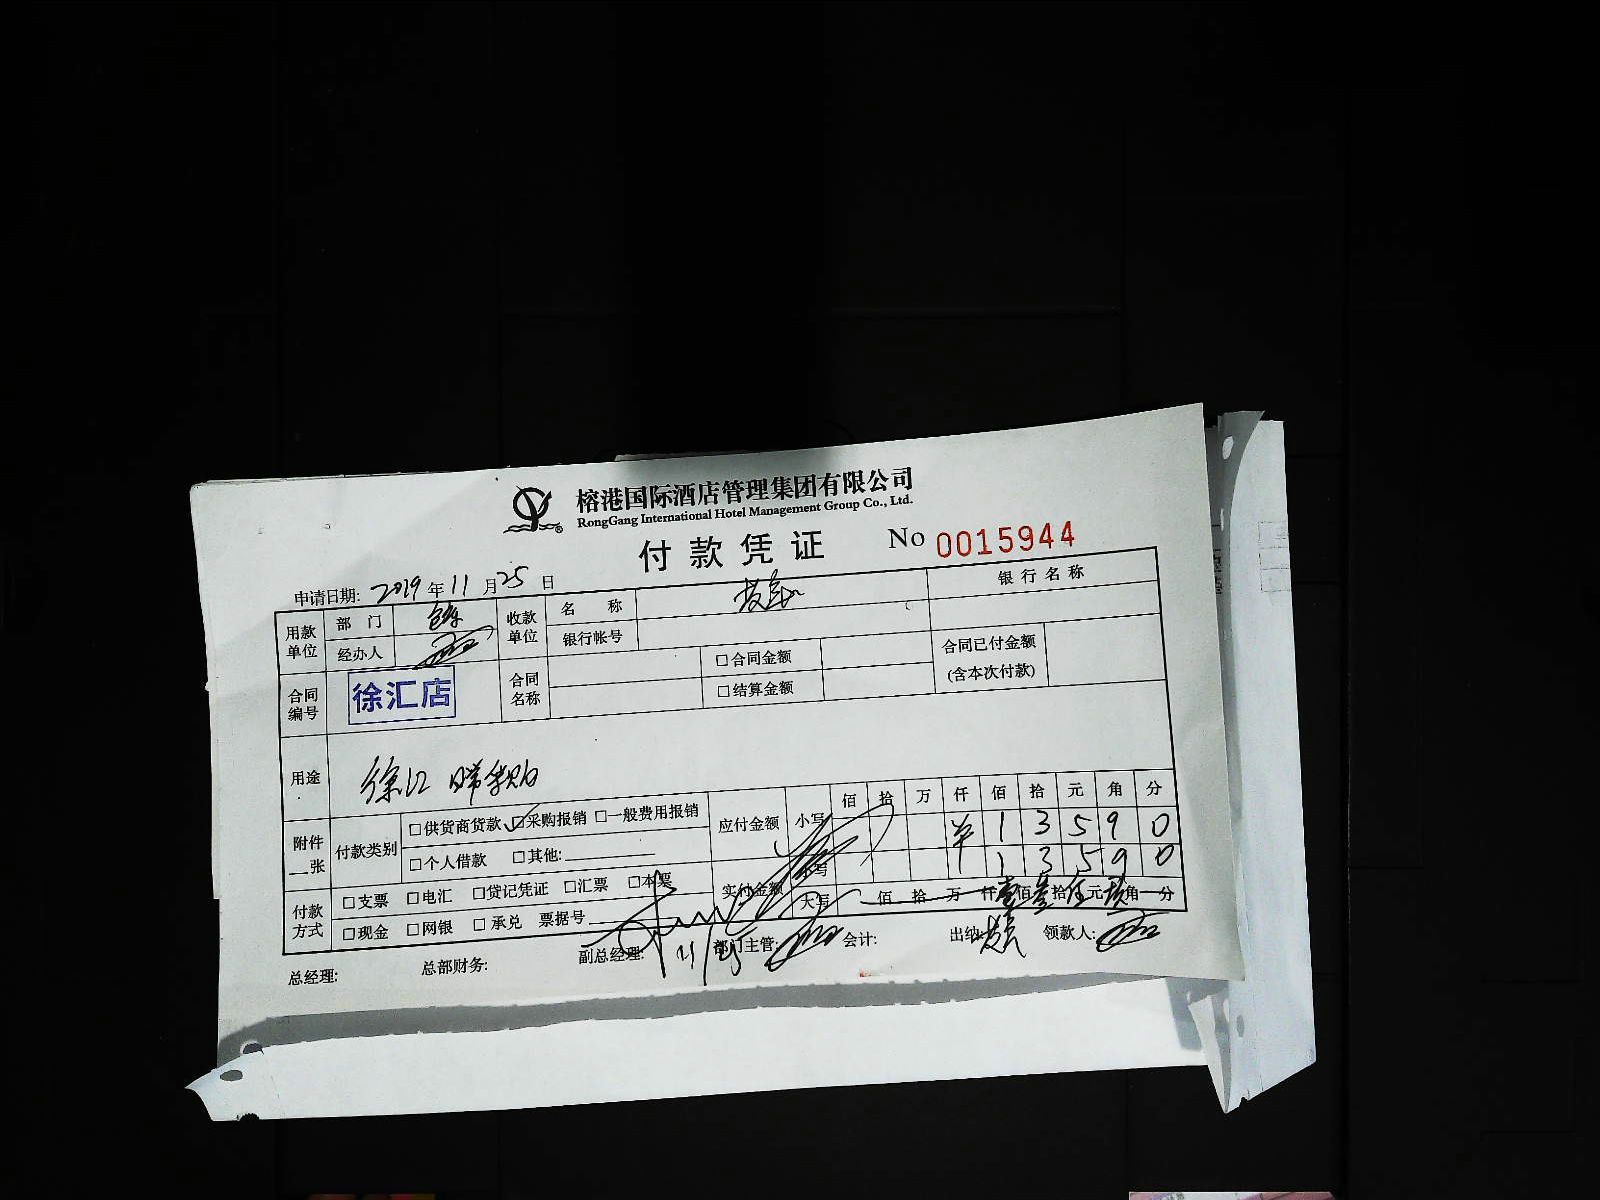 榕港国际酒店管理集团有限公司
RongGang International Hotel Management Group Co., Ltd.
付款凭证 No 0015944
申请日期: 2019 年 11 月 25 日
用款单位 部门 收款单位 名称 银行名称
经办人 银行帐号
合同编号 徐汇店 合同名称 □合同金额 合同已付金额(含本次付款)
□结算金额
用途 徐汇 日常采购
附件__张 付款类别 □供货商货款 □采购报销 □一般费用报销 应付金额 小写 佰 拾 万 仟 佰 拾 元 角 分
¥ 1 3 5 9 0
□个人借款 □其他: 实付金额 小写 1 3 5 9 0
付款方式 □支票 □电汇 □贷记凭证 □汇票 □本票 大写 佰 拾 万 仟 壹 佰 叁 拾 伍 元 玖 角 分
□现金 □网银 □承兑 票据号
总经理: 总部财务: 副总经理: 11/25 部门主管: 会计: 出纳: 领款人: